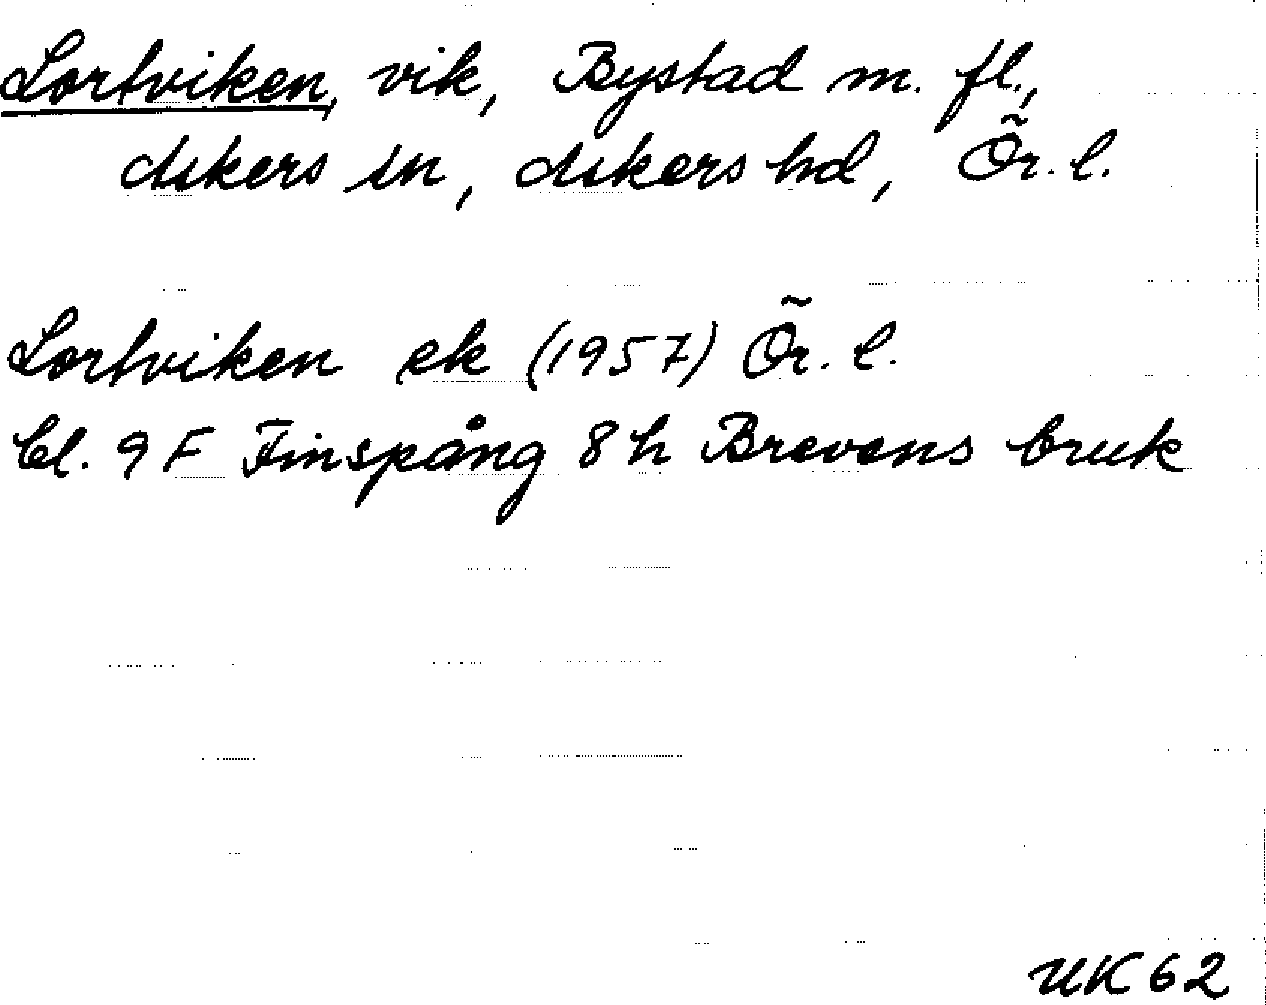 Lortviken, vik, Bystad m. fl.,
Askers sn, Askers hd, Ör. l.
Lortviken ek (1957) Ör. l.
bl. 9F Finspång 8h Brevens bruk
UK 62